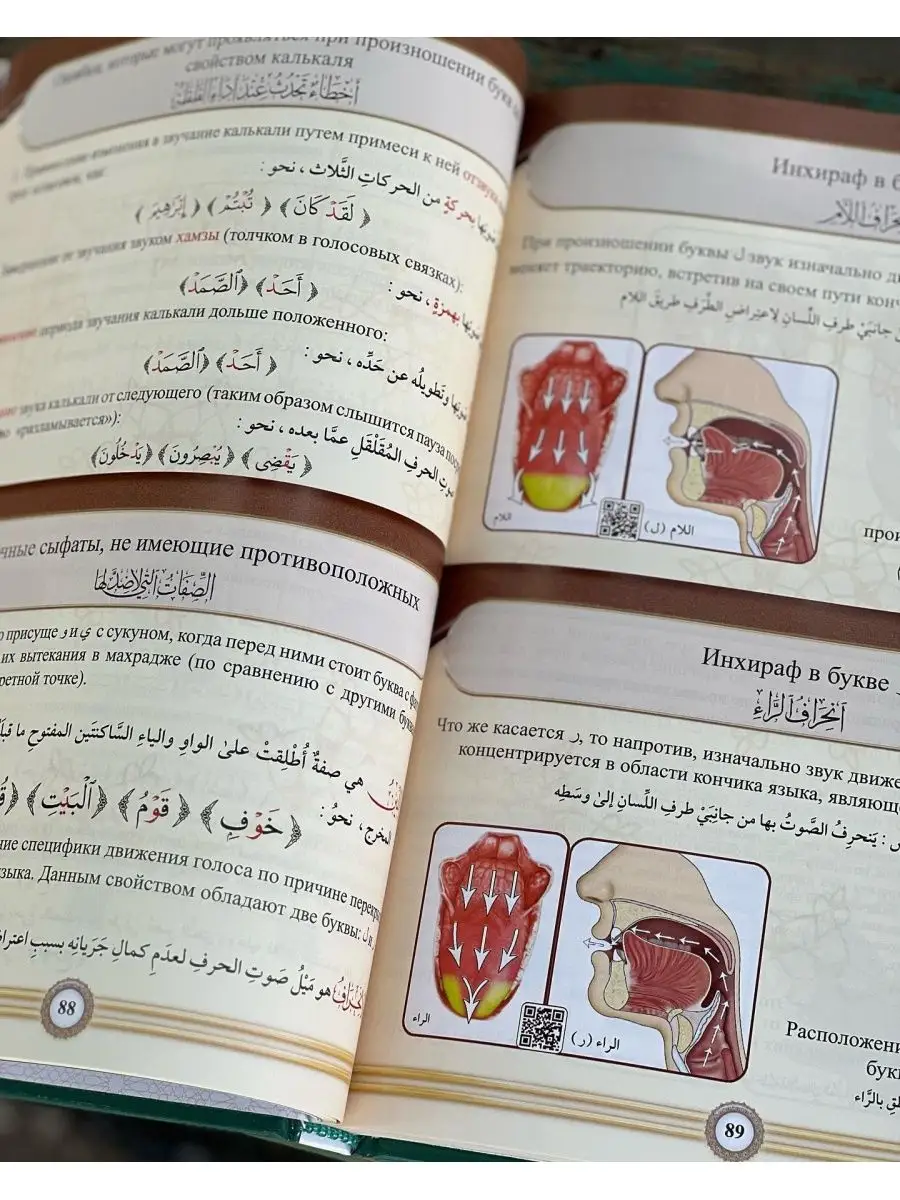 Ошибки, которые могут проявляться при произношении букв со
свойством калькаля
أخطاء تحدث عند أداء القلقلة
изменения в звучание калькали путем примеси к ней отзвука
صوتها بحركةٍ من الحركاتِ الثَّلاث ، نحو :
﴿ لَقَدْ كَانَ ﴾ ﴿ تُبْتُمْ ﴾ ﴿ إِبْرَٰهِيمَ ﴾
звучания звуком хамзы (толчком в голосовых связках):
صوتها بهمزةٍ ، نحو :
﴿ أَحَدْ ﴾ ﴿ ٱلصَّمَدْ ﴾
периода звучания калькали дольше положенного:
صوتها وتَطويلُه عن حَدِّه ، نحو :
﴿ أَحَدْ ﴾ ﴿ ٱلصَّمَدْ ﴾
звука калькали от следующего (таким образом слышится пауза
«разламывается»):
صوتِ الحرفِ المُقَلْقَلِ عمَّا بعده ، نحو :
﴿ يَقْضِى ﴾ ﴿ يُبْصِرُونَ ﴾ ﴿ يَدْخُلُونَ ﴾
чные сыфаты, не имеющие противоположных
الصِّفَاتُ الَّتِي لَا ضِدَّ لَهَا
присуще و и ي с сукуном, когда перед ними стоит буква с
их вытекания в махрадже (по сравнению с другими
ретной точке).
هي صفةٌ أُطْلِقتْ علىٰ الواوِ والياءِ السَّاكنتَينِ المفتوحِ ما
المخرج، نحوُ :
﴿ خَوْفٍ ﴾ ﴿ قَوْمُ ﴾ ﴿ ٱلْبَيْتِ ﴾
ние специфики движения голоса по причине
языка. Данным свойством обладают две буквы: ل и
هو مَيْلُ صَوتِ الحرفِ لعدَمِ كمالِ جَرَيانِه بسببِ
88
Инхираф в
انحراف اللام
При произношении буквы ل звук изначально
меняет траекторию, встретив на своем пути
جانبَيْ طرفِ اللِّسانِ لاعتِراضِ الطَّرَفِ طريقَ اللام
اللام
اللام (ل)
прои
Инхираф в букве
انحراف الراء
Что же касается ر, то напротив, изначально звук
концентрируется в области кончика языка,
: يَنحرِفُ الصَّوتُ بها من جانِبَيْ طرفِ اللِّسانِ إلىٰ وسَطِه
الراء
الراء (ر)
Расположени
бук
بالرَّاء
89